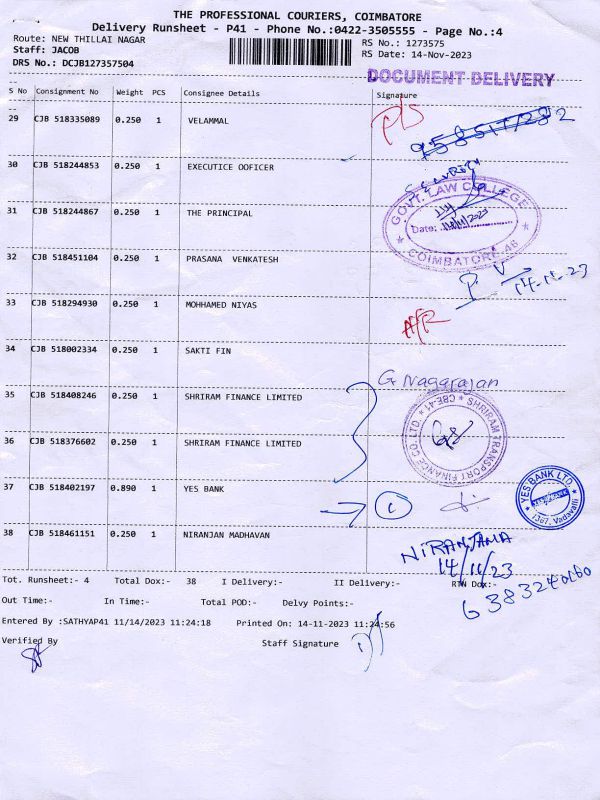 THE PROFESSIONAL COURIERS, COIMBATORE
Delivery Runsheet - P41 - Phone No.:0422-3505555 - Page No.:4
Route: NEW THILLAI NAGAR
RS No.: 1273575
Staff: JACOB
RS Date: 14-Nov-2023
DRS No.: DCJB127357504
DOCUMENT DELIVERY
S No Consignment No Weight PCS Consignee Details Signature
29 CJB 518335089 0.250 1 VELAMMAL
30 CJB 518244853 0.250 1 EXECUTICE OOFICER
31 CJB 518244867 0.250 1 THE PRINCIPAL
GOVT. LAW COLLEGE
Date:
COIMBATORE-46
32 CJB 518451104 0.250 1 PRASANA VENKATESH
P. V
14-11-23
33 CJB 518294930 0.250 1 MOHHAMED NIYAS
34 CJB 518002334 0.250 1 SAKTI FIN
G Nagarajan
35 CJB 518408246 0.250 1 SHRIRAM FINANCE LIMITED
SHRIRAM TRANSPORT FINANCE CO. LTD. CBE-41
36 CJB 518376602 0.250 1 SHRIRAM FINANCE LIMITED
37 CJB 518402197 0.890 1 YES BANK
YES BANK LTD.
1367, Vadavalli
38 CJB 518461151 0.250 1 NIRANJAN MADHAVAN
NIRANJANA
14/11/23
Tot. Runsheet:- 4 Total Dox:- 38 I Delivery:- II Delivery:- RTN Dox:-
Out Time:- In Time:- Total POD:- Delvy Points:-
Entered By :SATHYAP41 11/14/2023 11:24:18 Printed On: 14-11-2023 11:24:56
Verified By Staff Signature